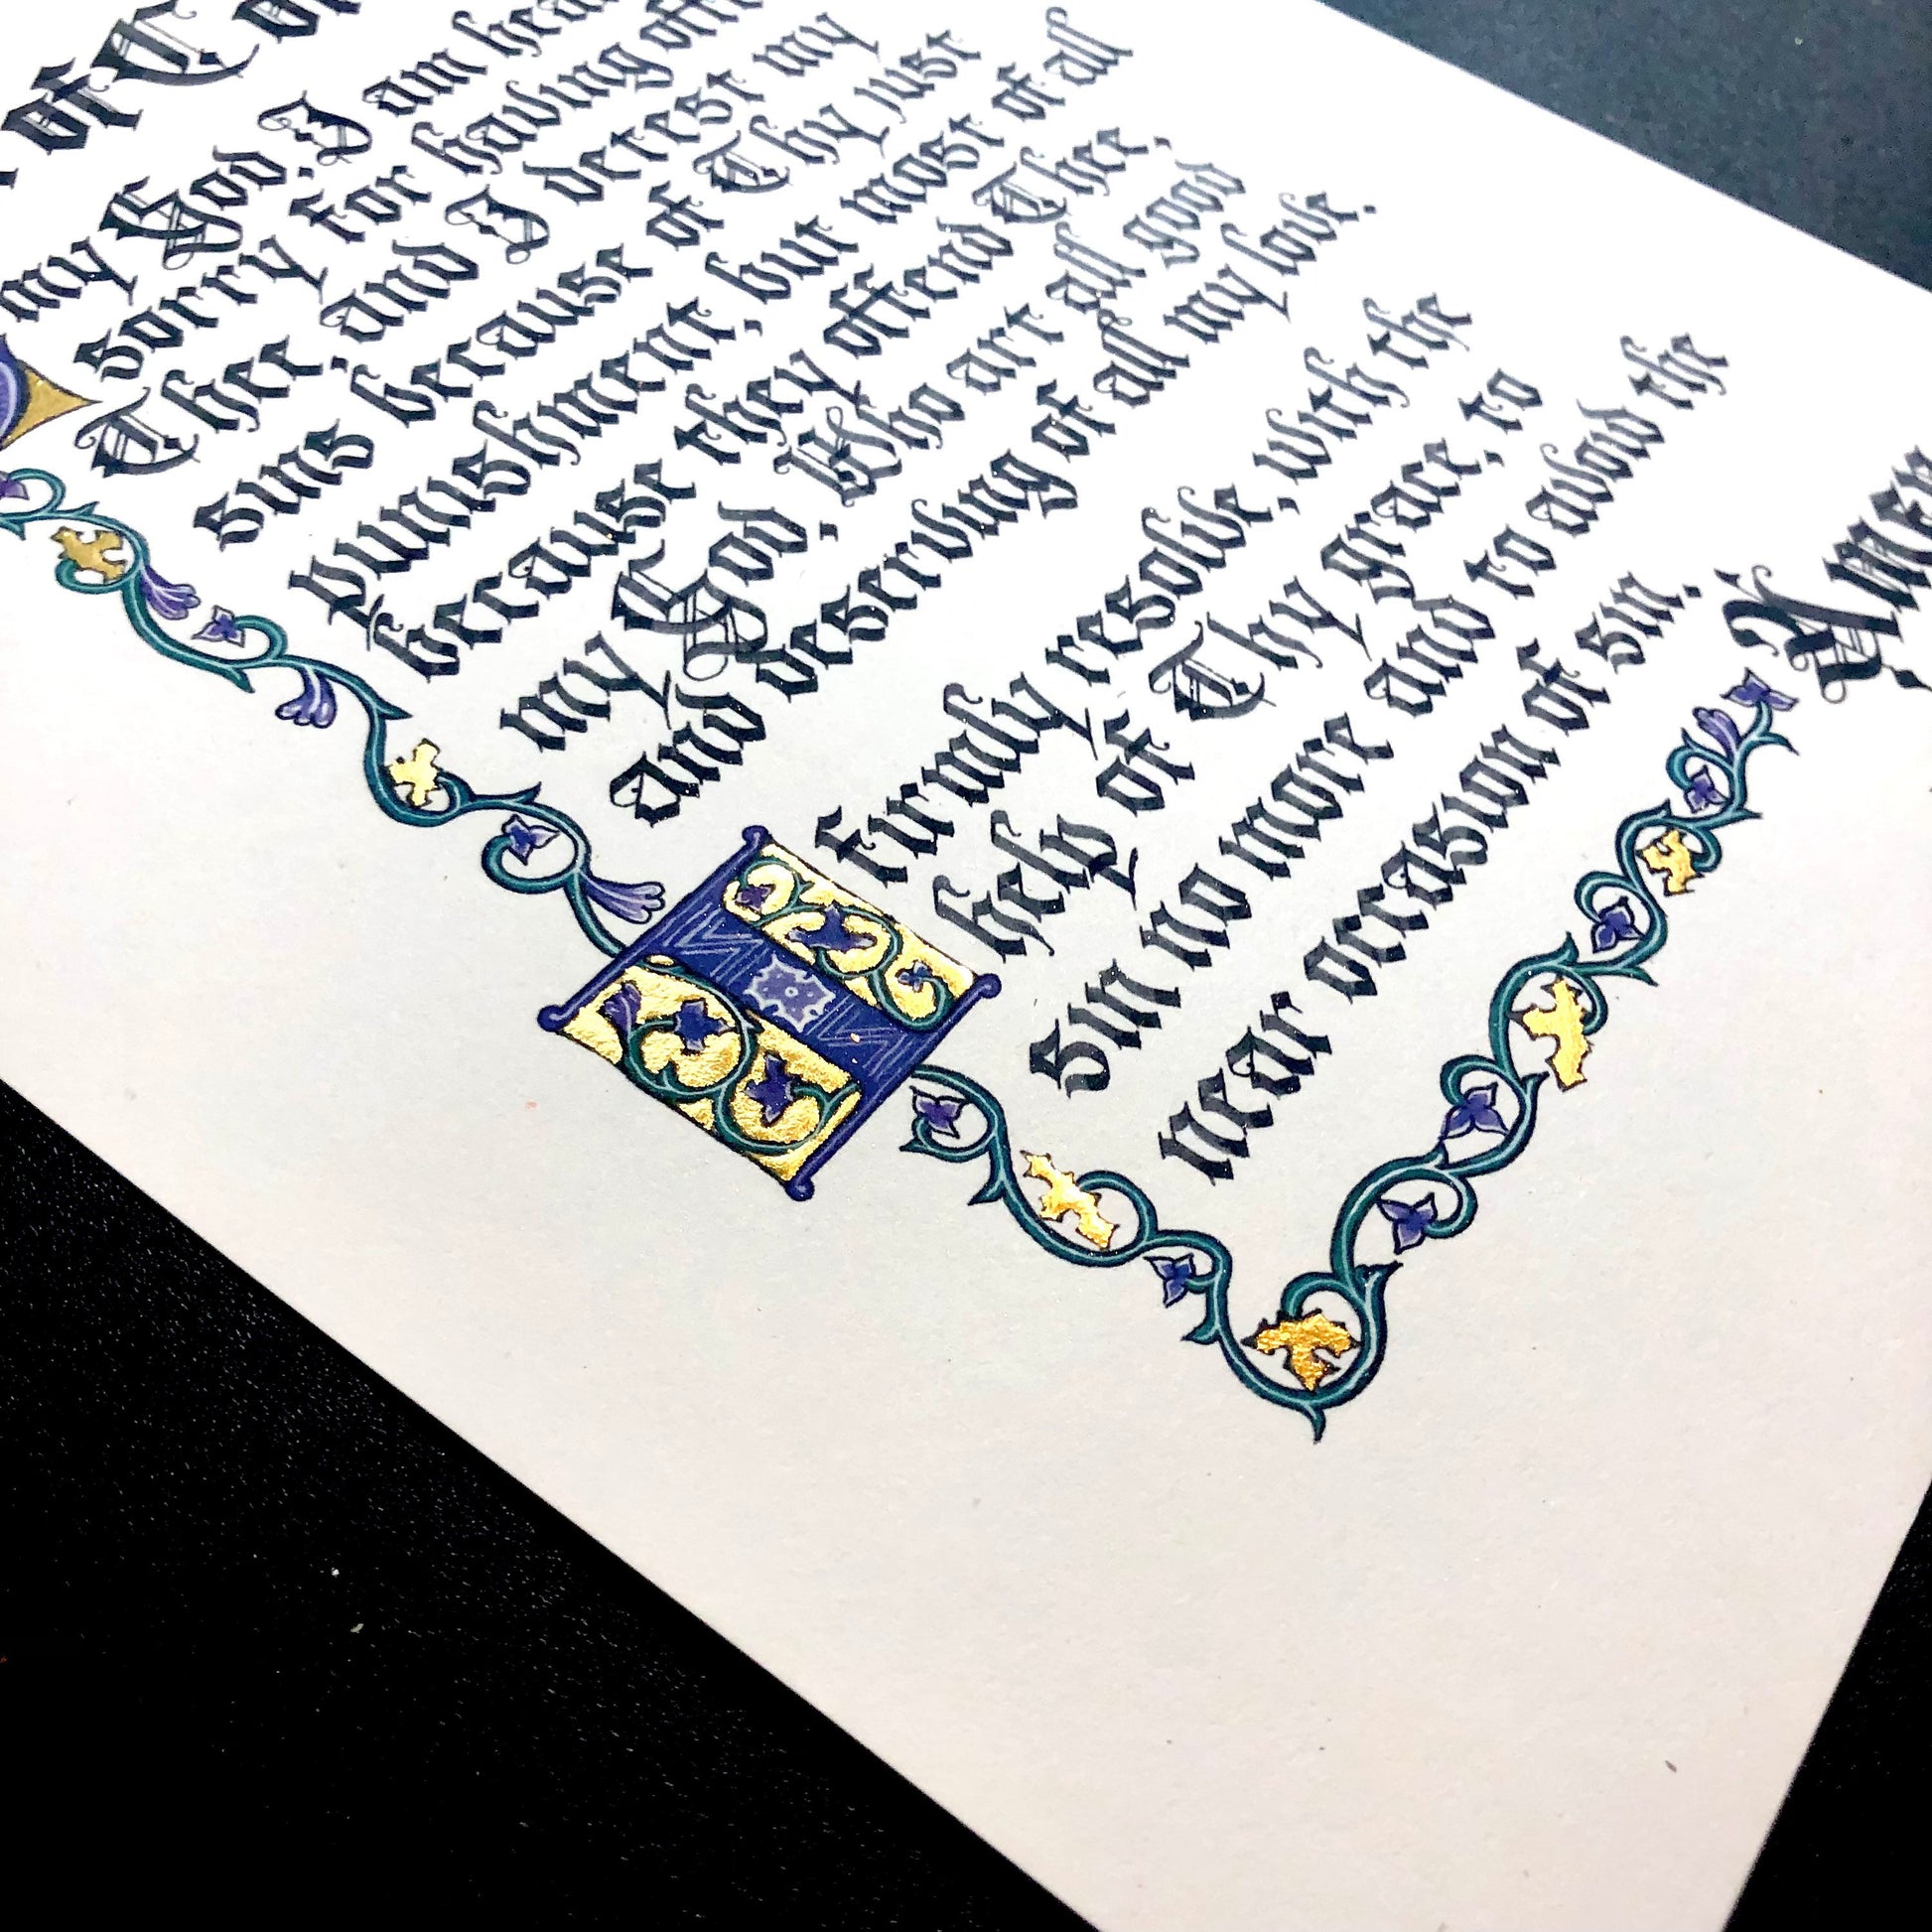 of Co
my God, I am hear
sorry for having offe
Thee, and I detest my
sins because of Thy just
punishment, but most of all
because they offend Thee,
my God, Who art all good
and deserving of all my love.
firmly resolve, with the
help of Thy grace, to
sin no more and to avoid the
near occasion of sin.
Amen